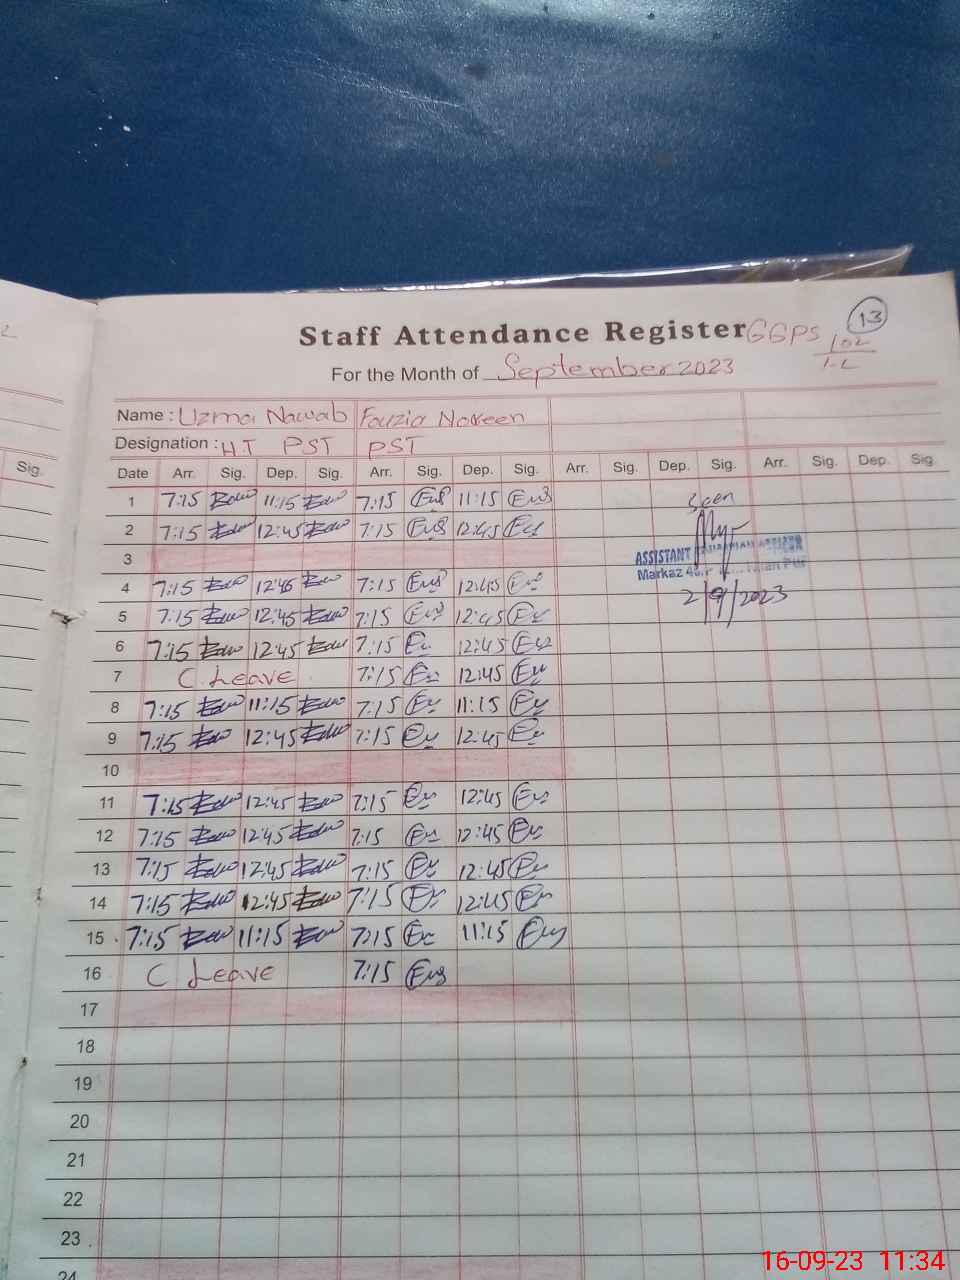 2
Sig.
13
Staff Attendance Register GGPS 102
1-L
For the Month of September 2023
Name : Uzma Nawab Fouzia Noreen
Designation : H.T PST PST
Date Arr. Sig. Dep. Sig. Arr. Sig. Dep. Sig. Arr. Sig. Dep. Sig. Arr. Sig. Dep. Sig.
1 7:15 11:15 7:15 11:15 Seen
2 7:15 12:45 7:15 12:45
3 ASSISTANT
Markaz
4 7:15 12:45 7:15 12:45
5 7:15 12:45 7:15 12:45 2/9/2023
6 7:15 12:45 7:15 12:45
7 C. Leave 7:15 12:45
8 7:15 11:15 7:15 11:15
9 7:15 12:45 7:15 12:45
10
11 7:15 12:45 7:15 12:45
12 7:15 12:45 7:15 12:45
13 7:15 12:45 7:15 12:45
14 7:15 12:45 7:15 12:45
15 7:15 11:15 7:15 11:15
16 C Leave 7:15
17
18
19
20
21
22
23
24
16-09-23 11:34